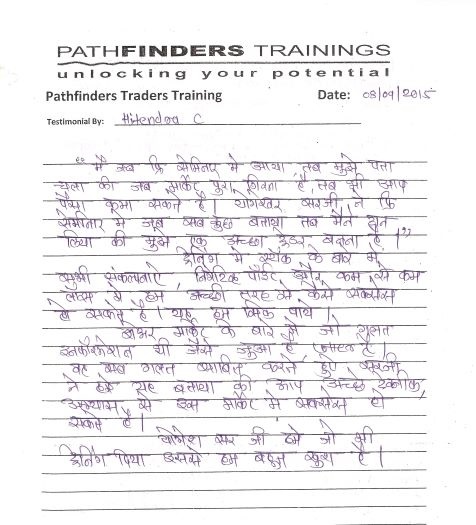 PATHFINDERS TRAININGS
unlocking your potential
Pathfinders Traders Training Date: 03/09/2015
Testimonial By: Hitendra C
"मैं जब फ्रि सेमिनार मे आया, तब मुझे पता
चला की जब मार्केट पुरा गिरता है, तब भी आप
पैसा कमा सकते है। योगेश्वर सरजी ने फ्रि
सेमीनार मे जब सब कुछ बताया तब मैने ठान
लिया की मुझे एक अच्छा ट्रेडर बनना है।"
ट्रेनिंग मे स्टॉक के बारे मे
सभी संकल्पनाए, और कम से कम
लॉस मे हम अच्छी तरह से कैसे सक्सेस
हो सकते है। यह हम सिख पाये।
शेअर मार्केट के बारे मे जो गलत
इनफॉर्मेशन थी जैसे जुआ है,
वह सब गलत साबित करते हुए सरजी
ने हमे यह बताया की आप अच्छे टेक्निक,
अभ्यास से इस मार्केट मे सक्सेस हो
सकते है।
योगेश सर जी हमे जो भी
ट्रेनिंग दिया इससे हम बहुत खुश है।